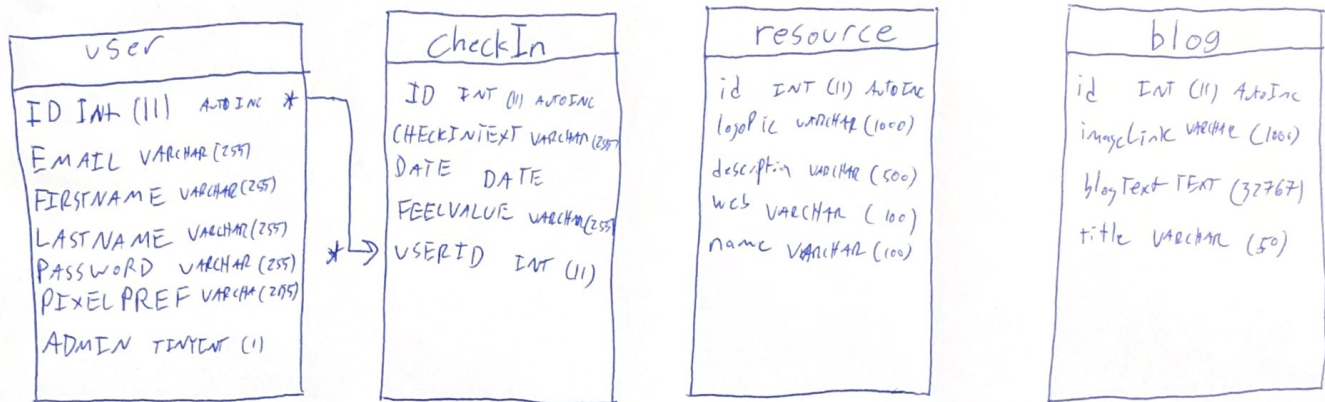 user
ID INt (11) AUTO INC *
EMAIL VARCHAR (255)
FIRSTNAME VARCHAR (255)
LASTNAME VARCHAR (255)
PASSWORD VARCHAR (255)
PIXELPREF VARCHA (255)
ADMIN TINYINT (1)
checkIn
ID INT (11) AUTOINC
CHECKINTEXT VARCHAR (255)
DATE DATE
FEELVALUE VARCHAR (255)
* USERID INT (11)
resource
id INT (11) AutoInc
logoPic VARCHAR (1000)
description VARCHAR (500)
web VARCHAR (100)
name VARCHAR (100)
blog
id INT (11) AutoInc
imageLink VARCHAR (1000)
blogText TEXT (32767)
title VARCHAR (50)